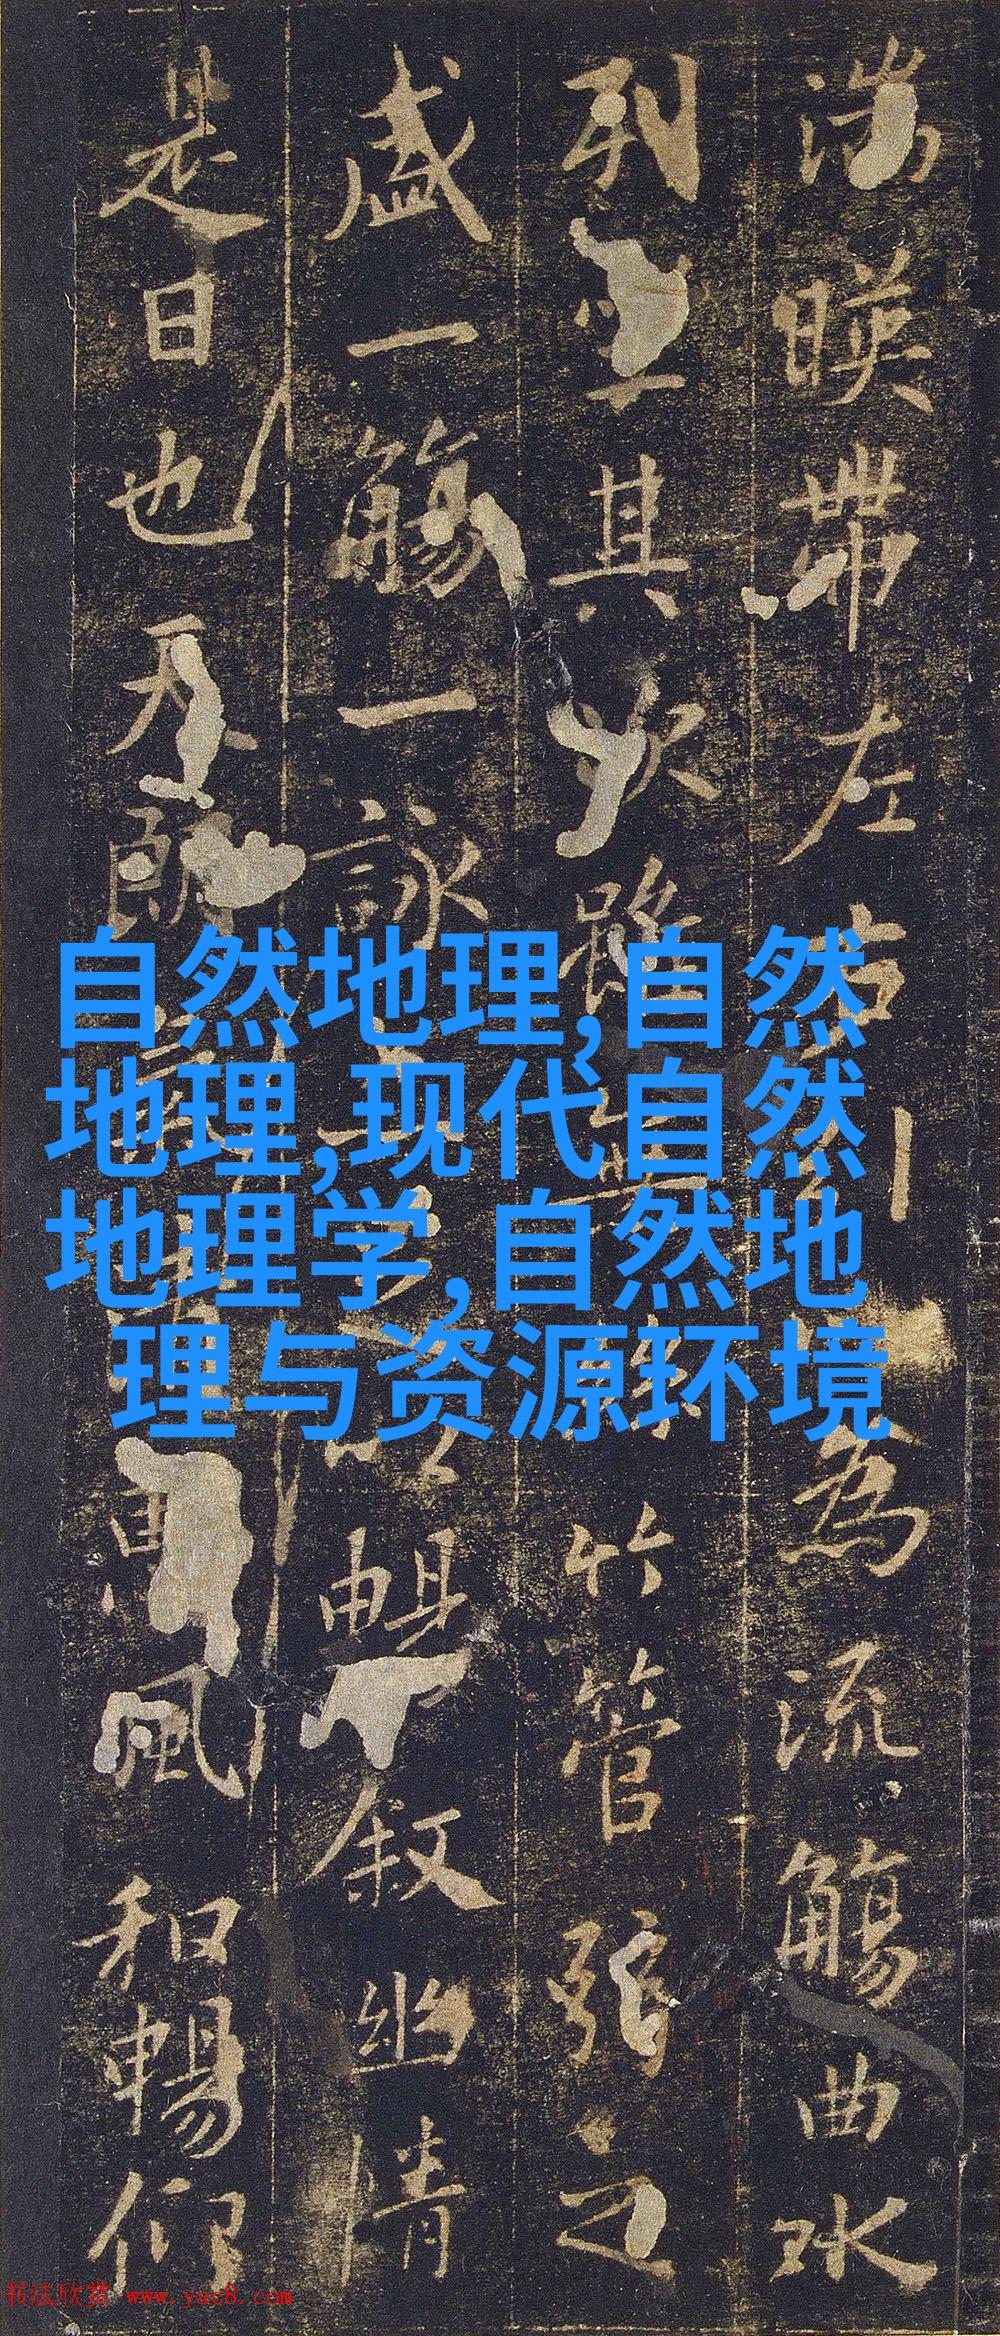 湍暎帶左右為流觴曲水
列坐其次雖無竹管弦之
盛一觴一詠暢敘幽情
是日也天朗惠風和暢仰
自然地理,自然
地理,现代自然
地理学,自然地
理与资源环境
书法欣赏 www.yac8.com